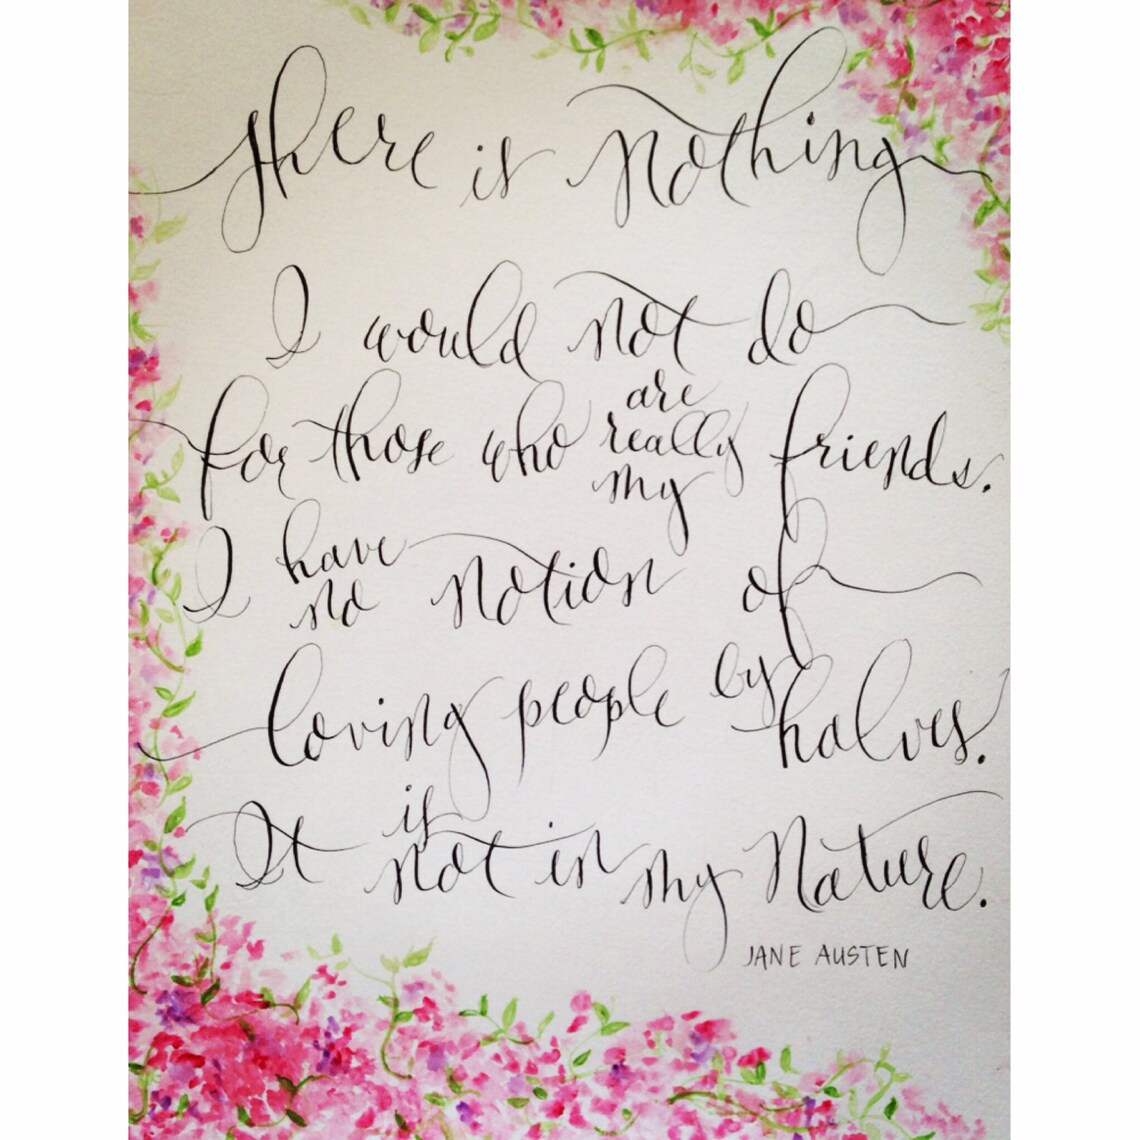 There is Nothing
I would not do
for those who are really my friends.
I have no Notion of
loving people by halves.
It is not in my Nature.
JANE AUSTEN